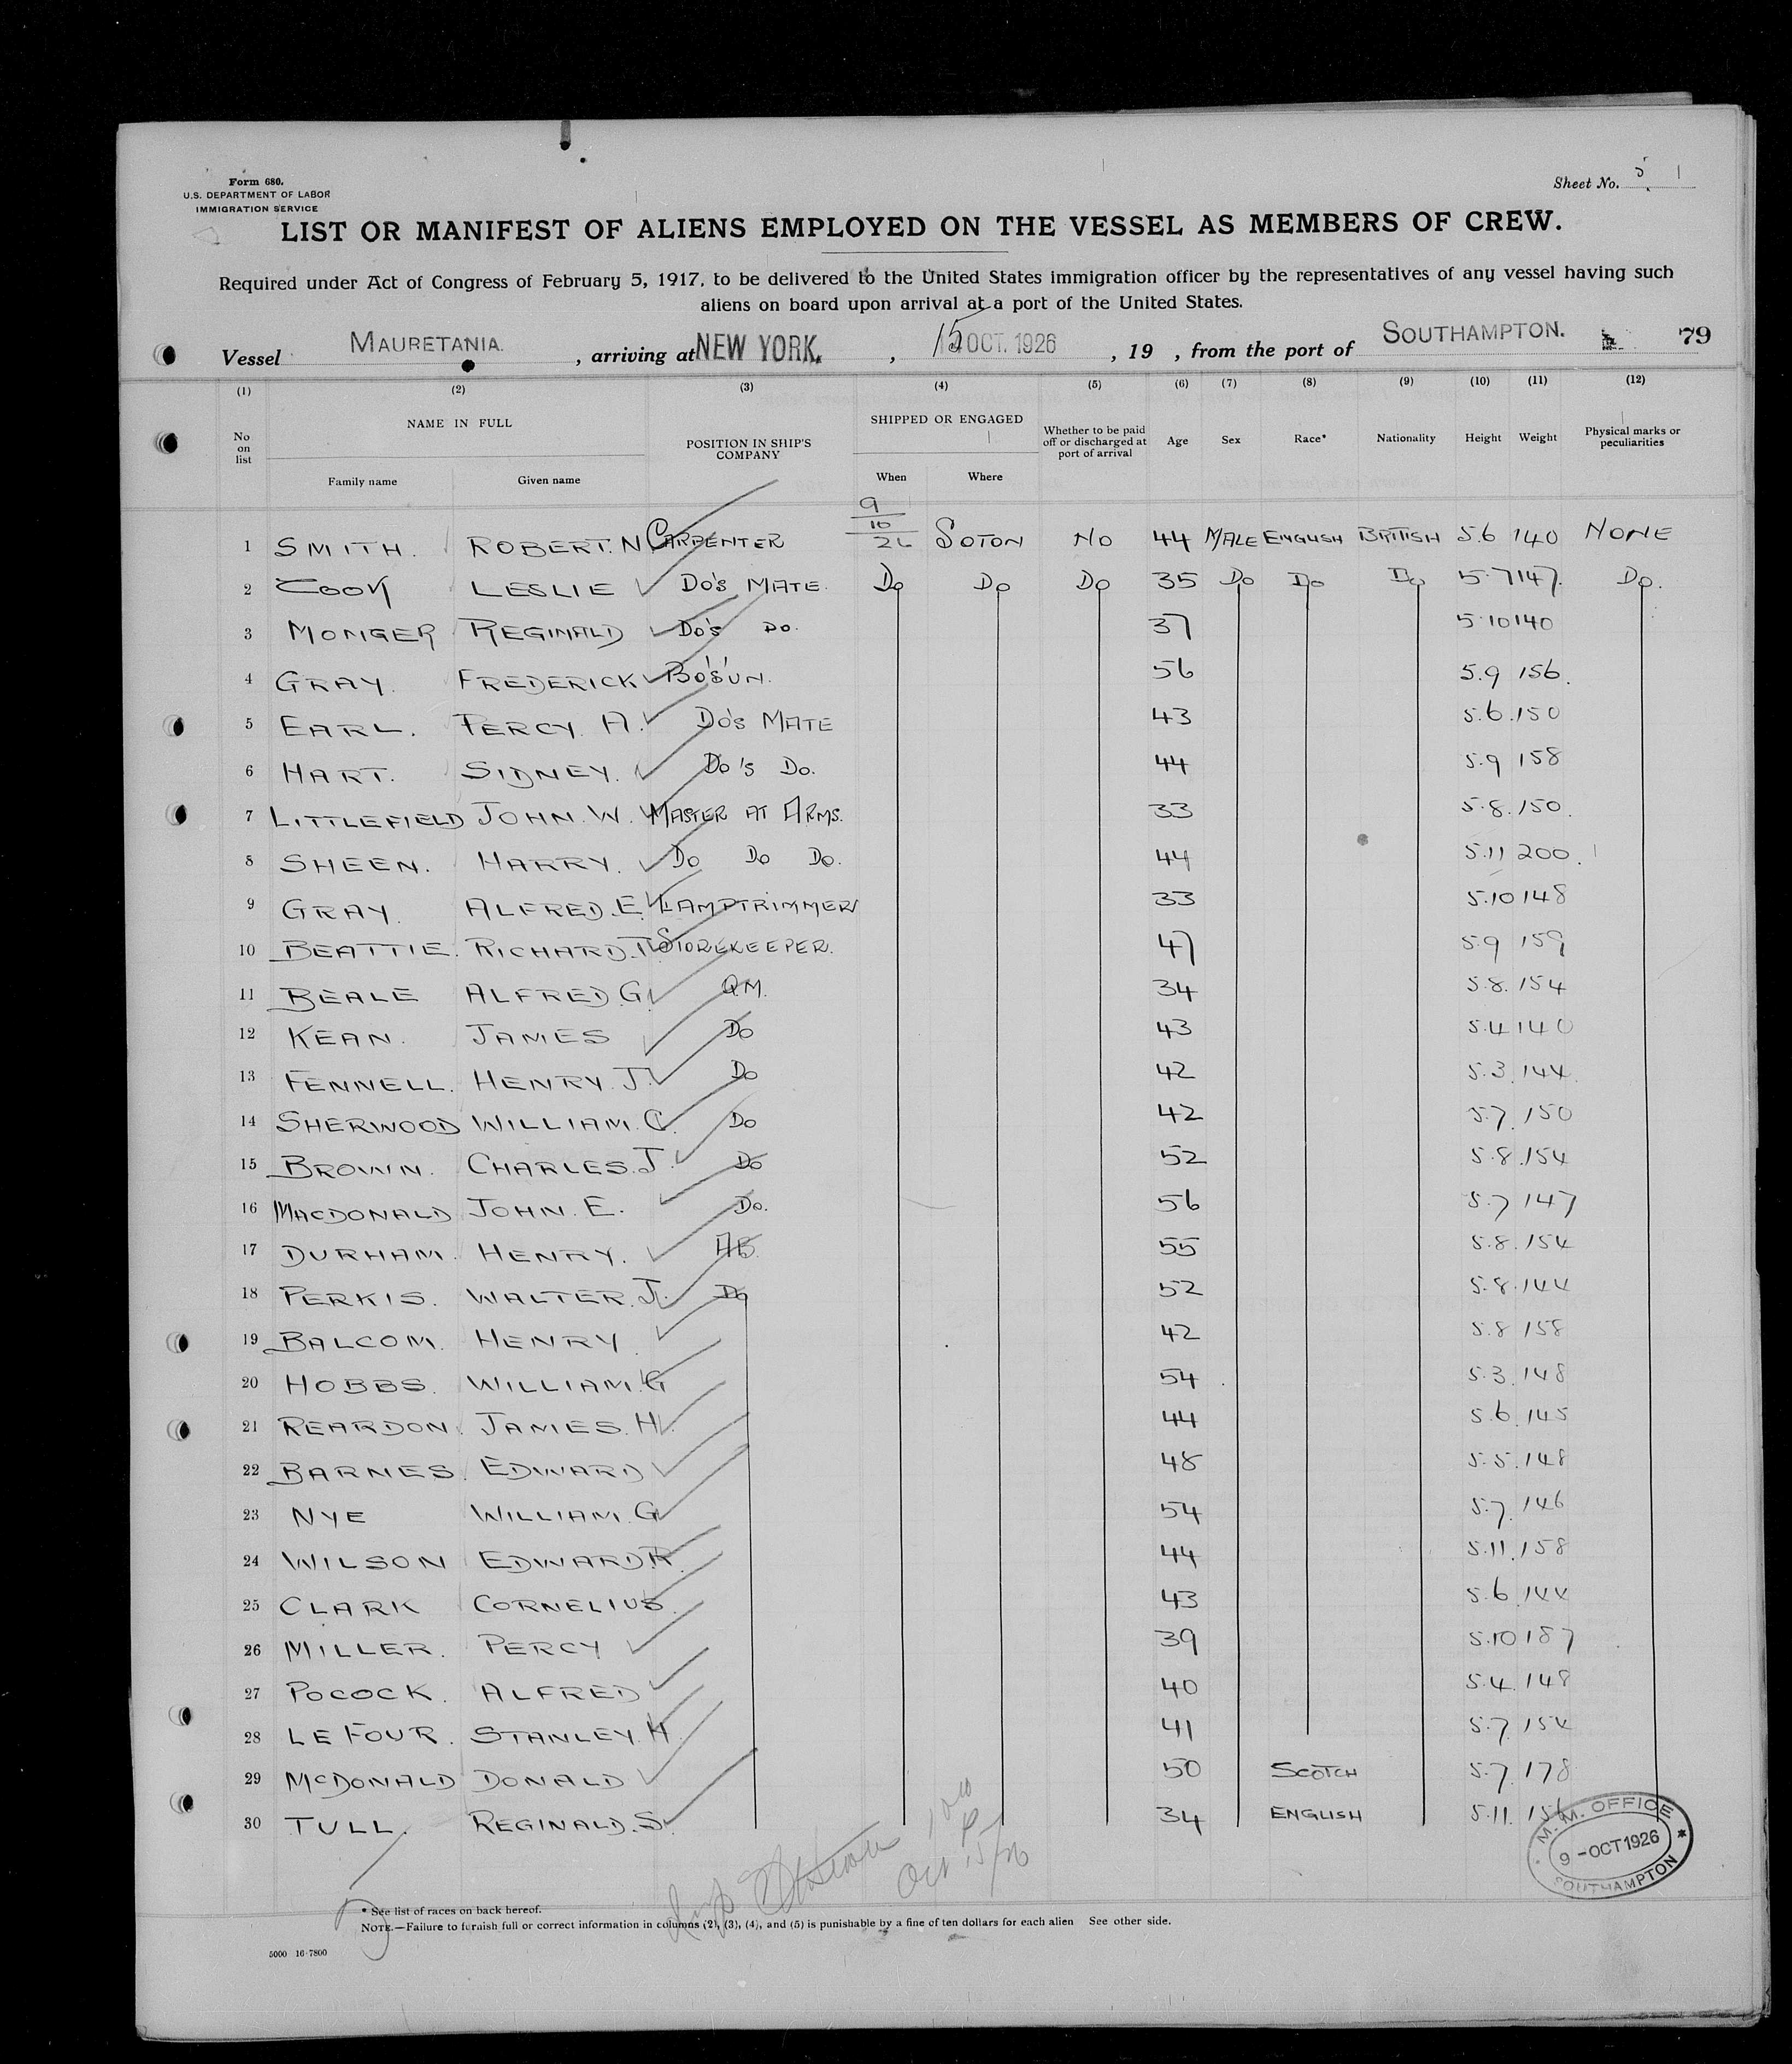 Form 680.
U.S. DEPARTMENT OF LABOR
IMMIGRATION SERVICE
Sheet No. 5 1
LIST OR MANIFEST OF ALIENS EMPLOYED ON THE VESSEL AS MEMBERS OF CREW.
Required under Act of Congress of February 5, 1917, to be delivered to the United States immigration officer by the representatives of any vessel having such
aliens on board upon arrival at a port of the United States.
Vessel MAURETANIA. , arriving at NEW YORK. , 15 OCT. 1926 , 19 , from the port of SOUTHAMPTON. 79
(1) (2) (3) (4) (5) (6) (7) (8) (9) (10) (11) (12)
No on list NAME IN FULL Family name Given name POSITION IN SHIP'S COMPANY SHIPPED OR ENGAGED When Where Whether to be paid off or discharged at port of arrival Age Sex Race* Nationality Height Weight Physical marks or peculiarities
1 SMITH. ROBERT. N CARPENTER 9/10/26 SOTON NO 44 MALE ENGLISH BRITISH 5.6 140 NONE
2 COOK LESLIE DO'S MATE. DO DO DO 35 DO DO DO 5.7 147. DO.
3 MONGER REGINALD DO'S DO. 37 5.10 140
4 GRAY. FREDERICK BO'S'UN. 56 5.9 156.
5 EARL. PERCY A. DO'S MATE 43 5.6. 150
6 HART. SIDNEY. DO'S DO. 44 5.9 158
7 LITTLEFIELD JOHN. W. MASTER AT ARMS. 33 5.8. 150.
8 SHEEN. HARRY. DO DO DO. 44 5.11 200.
9 GRAY. ALFRED. E. LAMPTRIMMER 33 5.10 148
10 BEATTIE. RICHARD. T. STOREKEEPER. 47 5.9 159
11 BEALE ALFRED. G. QM. 34 5.8. 154
12 KEAN. JAMES DO 43 5.4 140
13 FENNELL. HENRY. J. DO 42 5.3. 144.
14 SHERWOOD WILLIAM. C. DO 42 5.7. 150
15 BROWN. CHARLES. J. DO 52 5.8. 154
16 MACDONALD JOHN. E. DO. 56 5.7 147
17 DURHAM. HENRY. AB. 55 5.8. 154
18 PERKIS. WALTER. J. DO 52 5.8. 144
19 BALCOM. HENRY. 42 5.8 158
20 HOBBS. WILLIAM. G 54 5.3. 148
21 REARDON. JAMES. H. 44 5.6. 145
22 BARNES. EDWARD 48 5.5. 148
23 NYE WILLIAM. G 54 5.7. 146
24 WILSON EDWARD. R. 44 5.11. 158
25 CLARK CORNELIUS. 43 5.6. 144
26 MILLER. PERCY 39 5.10 187
27 POCOCK. ALFRED 40 5.4. 148
28 LE FOUR. STANLEY. H. 41 5.7. 154
29 MCDONALD DONALD 50 SCOTCH 5.7. 178
30 TULL. REGINALD. S. 34 ENGLISH 5.11. 156
M. M. OFFICE
9 - OCT 1926
SOUTHAMPTON
Oct 15/26
* See list of races on back hereof.
NOTE.—Failure to furnish full or correct information in columns (2), (3), (4), and (5) is punishable by a fine of ten dollars for each alien See other side.
5000 16-7800